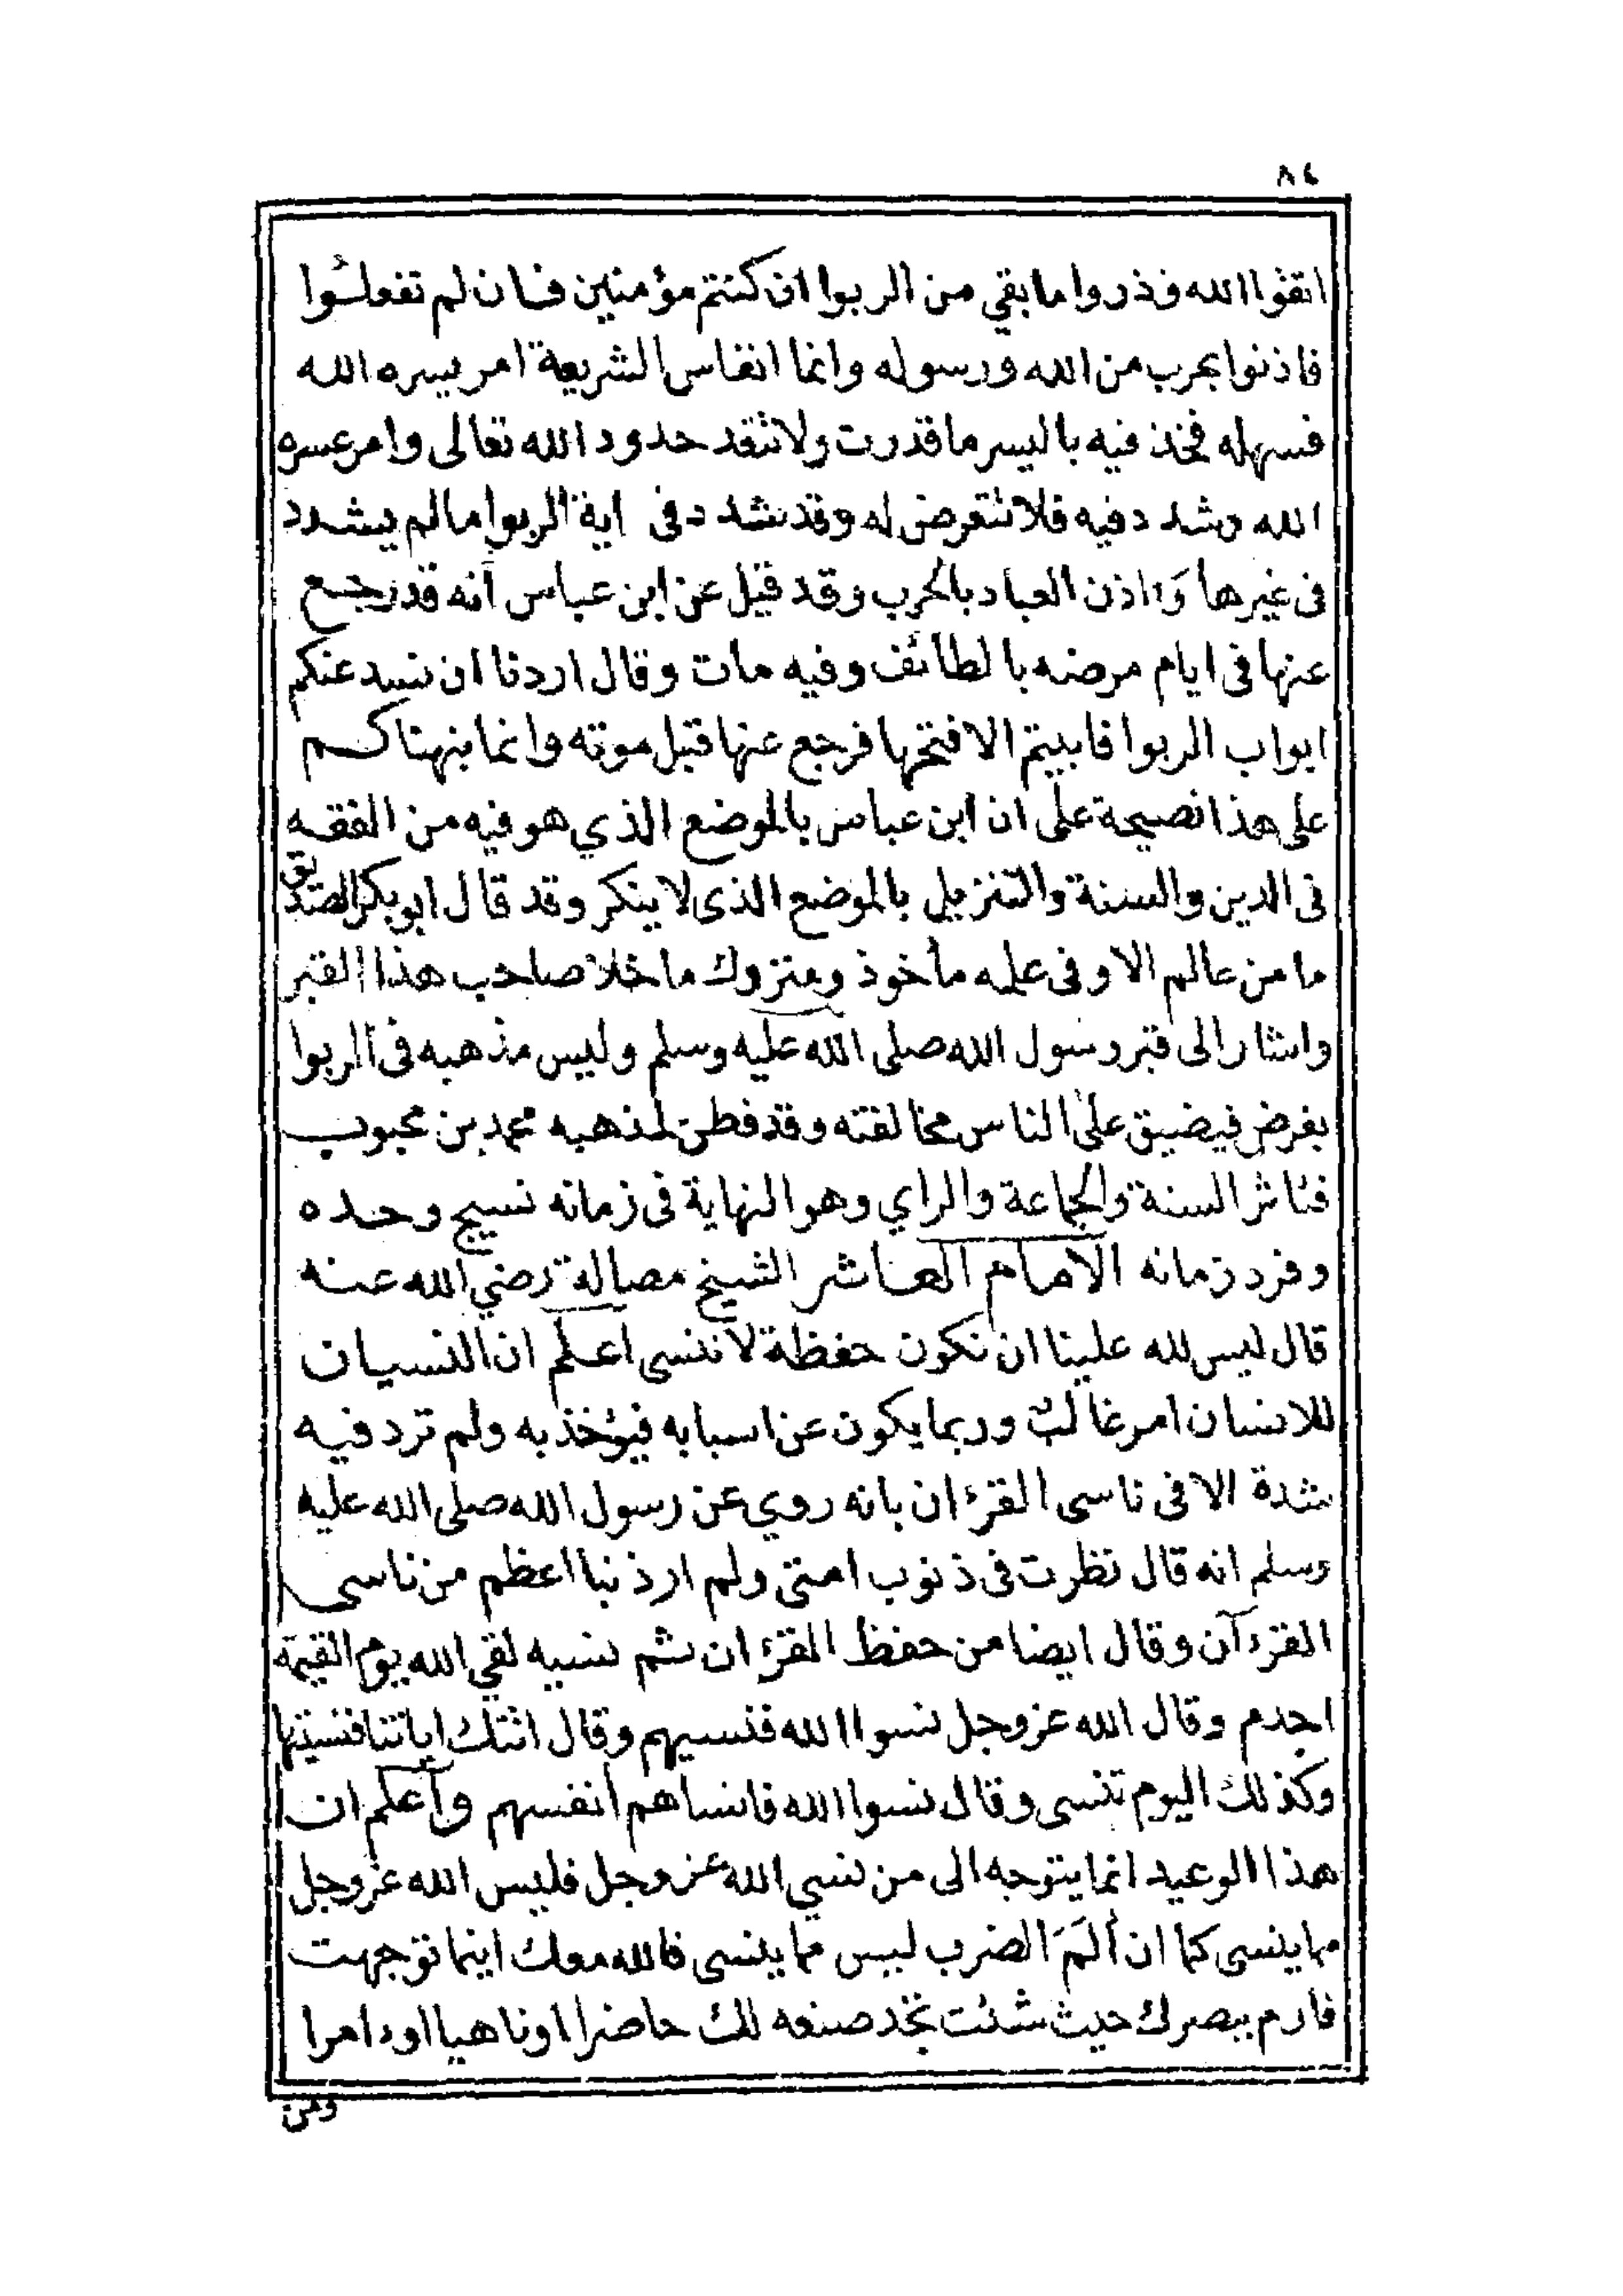 ٨٤
اتقوا الله وذروا ما بقي من الربوا ان كنتم مؤمنين فان لم تفعلوا
فاذنوا بحرب من الله ورسوله وانما انفاس الشريعة امر يسره الله
فسهله فخذ فيه باليسر ما قدرت ولا تتعد حدود الله تعالى وامر عسره
الله وشدد فيه فلا تتعرض له وقد شدد فى اية الربوا ما لم يشدد
فى غيرها وءاذن العباد بالحرب وقد قيل عن ابن عباس أنه قد رجع
عنها فى ايام مرضه بالطائف وفيه مات وقال اردنا ان نسد عنكم
ابواب الربوا فابيتم الا فتحها فرجع عنها قبل موته وانما ينهناكم
على هذا نصيحة على ان ابن عباس بالموضع الذي هو فيه من الفقه
فى الدين والسنة والتنزيل بالموضع الذى لا ينكر وقد قال ابوبكر الصديق
ما من عالم الا وفى علمه مأخوذ ومتروك ما خلا صاحب هذا القبر
واشار الى قبر رسول الله صلى الله عليه وسلم وليس مذهبه فى الربوا
بفرض فيضيق على الناس مخالفته وقد فطن لمذهبه محمد بن محبوب
فناشر السنة والجماعة والراي وهو النهاية فى زمانه نسيج وحده
وفرد زمانه الامام العاشر الشيخ مصالة رضي الله عنه
قال ليس لله علينا ان نكون حفظة لا ننسى اعلم ان النسيان
للانسان امر غالب وربما يكون عن اسبابه فيؤخذ به ولم ترد فيه
شدة الا فى ناسى القرءان بانه روي عن رسول الله صلى الله عليه
وسلم انه قال نظرت فى ذنوب امتى ولم ار ذنبا اعظم من ناسى
القرءآن وقال ايضا من حفظ القرءان ثم نسيه لقي الله يوم القيمة
اجدم وقال الله عز وجل نسوا الله فنسيهم وقال اتتك اياتنا فنسيتها
وكذلك اليوم تنسى وقال نسوا الله فانساهم أنفسهم وآعلم ان
هذا الوعيد انما يتوجه الى من نسي الله عز وجل فليس الله عز وجل
مما ينسى كما ان ألَمَ الضرب ليس مما ينسى فالله معك اينما توجهت
فارم ببصرك حيث شئت تجد صنعه لك حاضرا او ناهيا اوءامرا
ومن